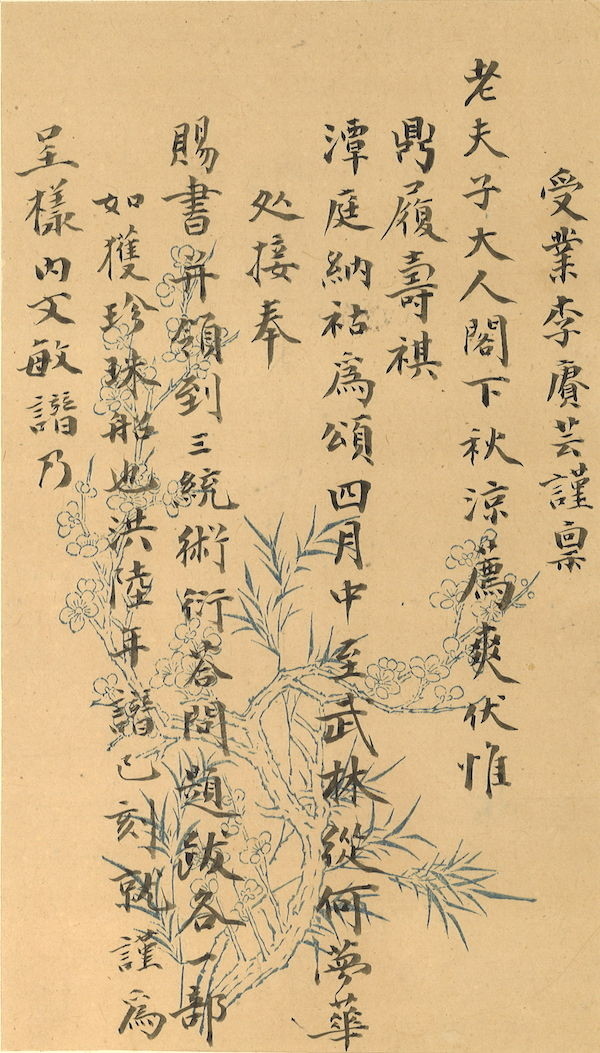 受業李賡芸謹禀
老夫子大人閣下秋涼薦爽伏惟
鼎履壽祺
潭庭納祜為頌四月中至武林從何夢華
処接奉
賜書并領到三統術衍荅問題跋各一部
如獲珍珠船也洪陸年譜已刻就謹為
呈樣内文敏譜乃